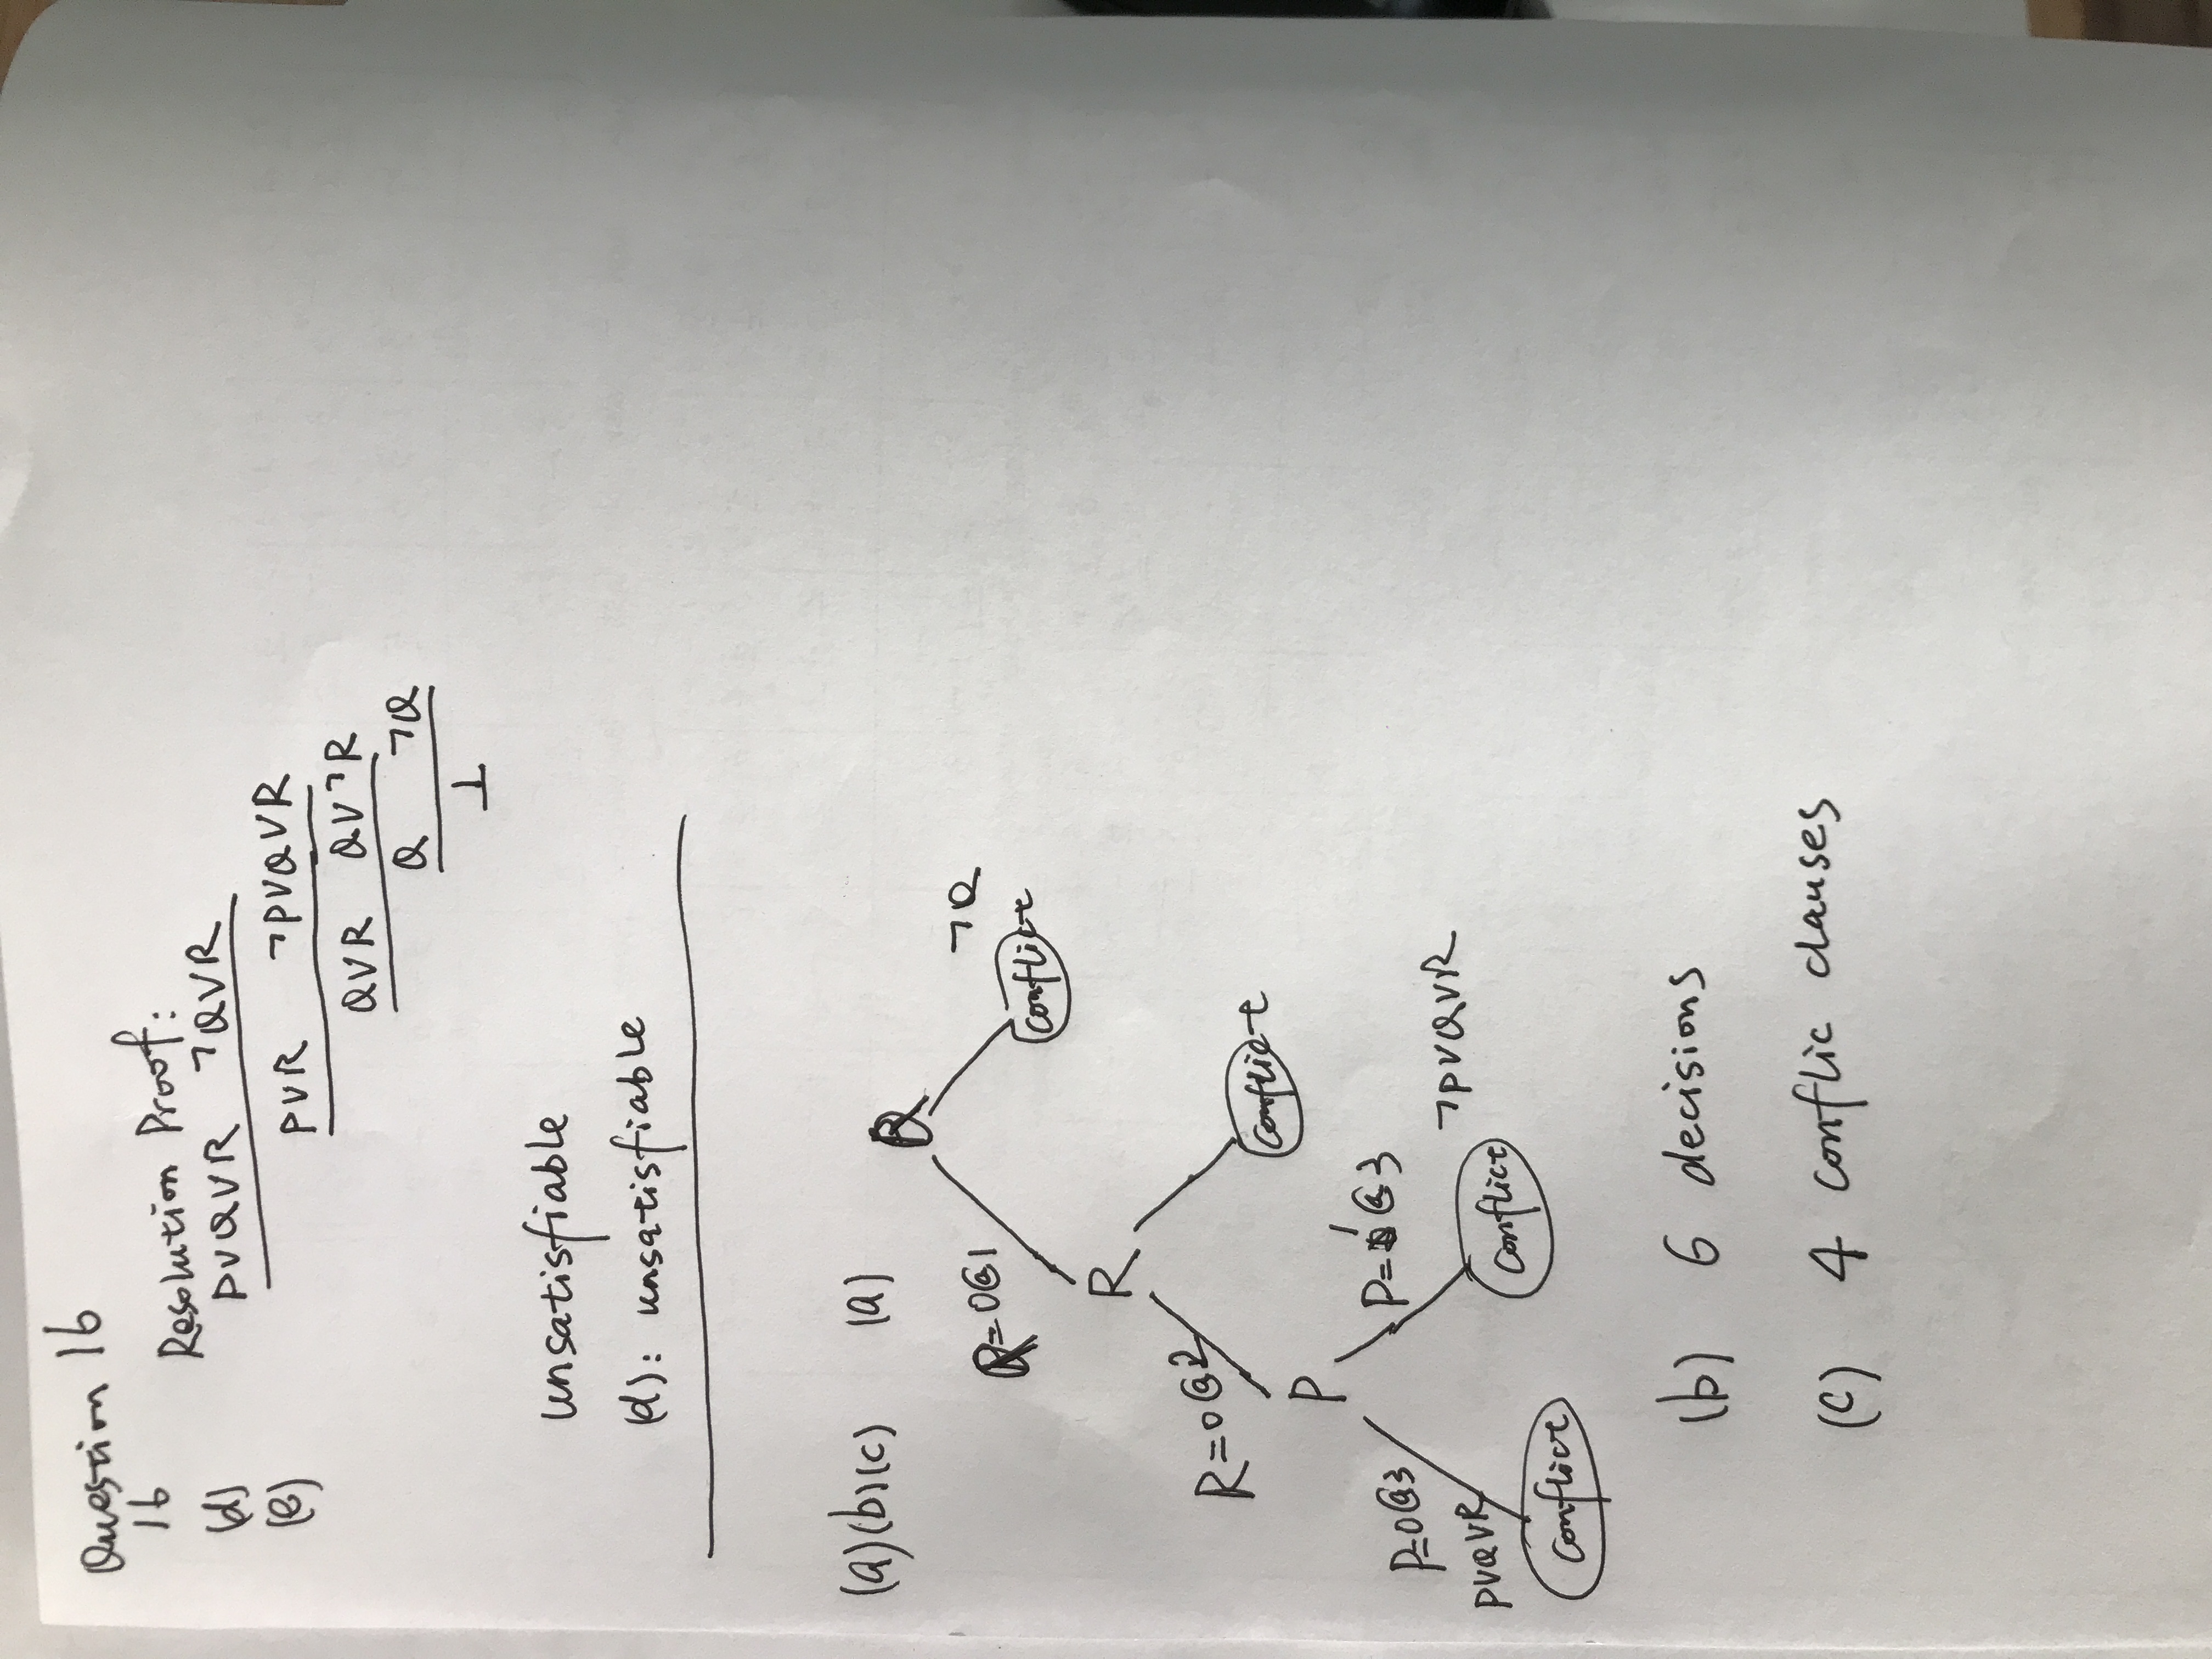 Question 16
16
Resolution Proof:
(d)
P∨Q∨R ¬Q∨R
(e)
P∨R ¬P∨Q∨R
Q∨R Q∨¬R
Q ¬Q
⊥
unsatisfiable
(d): unsatisfiable
(a)(b)(c) (a)
Q
Q=0@1
¬Q
conflict
R
R=0@2
conflict
P
P=0@3
P=1@3
P∨Q∨R
¬P∨Q∨R
conflict
conflict
(b) 6 decisions
(c) 4 conflic clauses